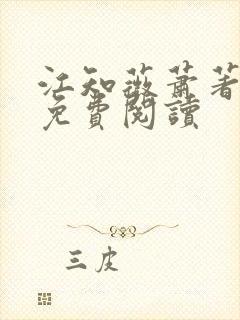 江知薇蕭著
免費閱讀
三皮